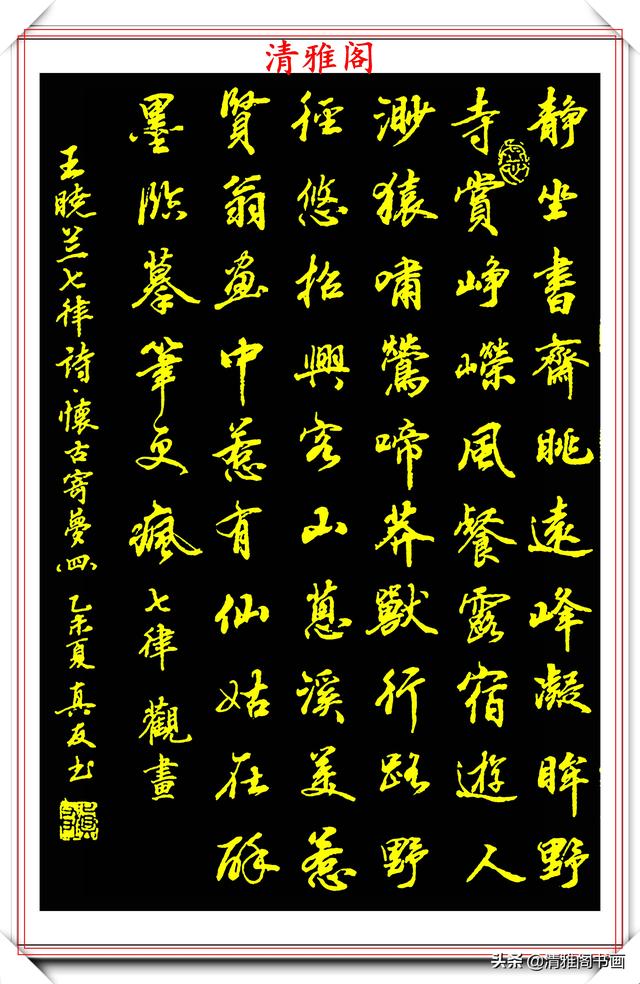 清雅阁
静坐書齋眺遠峰凝眸野
寺賞峥嶸風餐露宿遊人
渺猿嘯鶯啼莽獸行路野
徑悠招興客山蔥溪美惹
賢翁画中惹有仙姑在酔
墨臨摹筆更瘋 七律 觀畫
王曉兰七律诗·懷古寄夢(四) 乙未夏 真友书
头条 @清雅阁书画